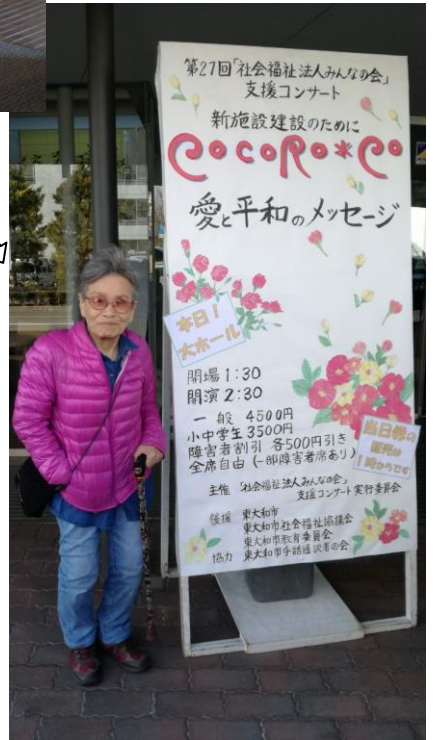 第27回「社会福祉法人みんなの会」
支援コンサート
新施設建設のために
COCORO*CO
愛と平和のメッセージ
本日!
大ホール
開場1:30
開演2:30
一般 4500円
小中学生3500円
障害者割引 各500円引き
全席自由(一部障害者席あり)
当日券の
販売は
1時からです
主催 「社会福祉法人みんなの会」
支援コンサート実行委員会
後援 東大和市
東大和市社会福祉協議会
東大和市教育委員会
協力 東大和市手話通訳者の会